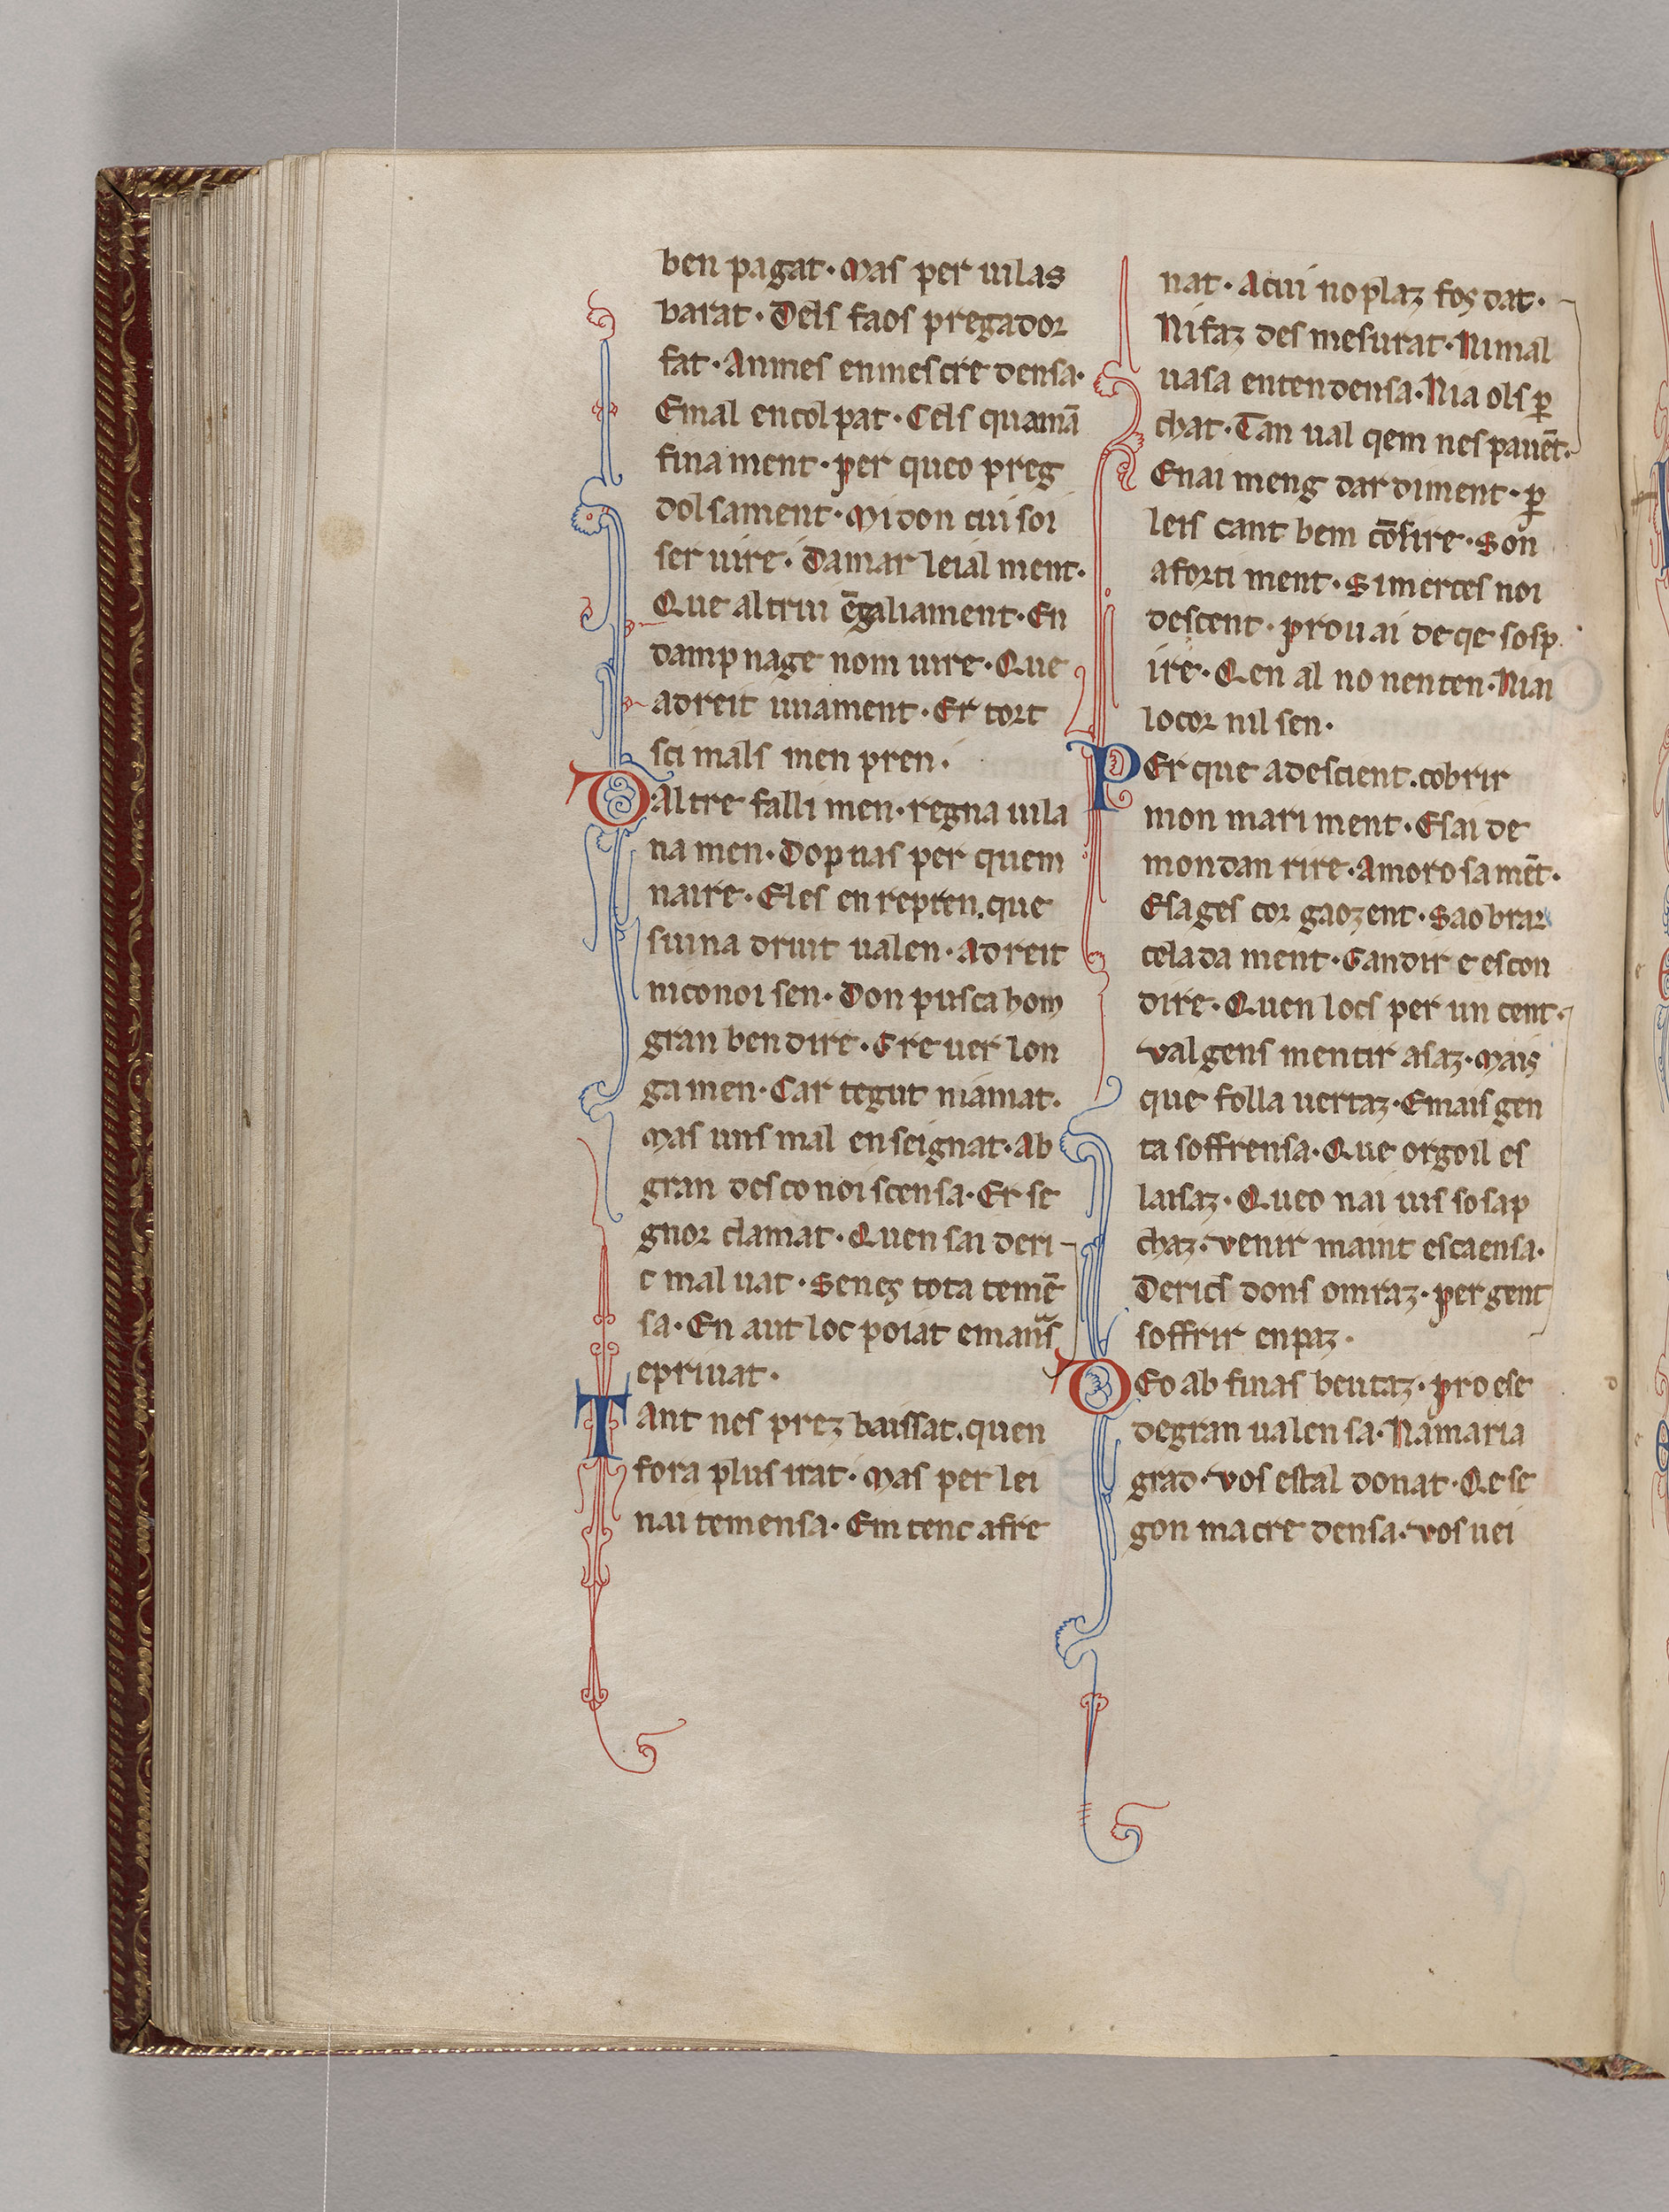 ben pagat· Mas per uilas
barat· Dels faos pregador
fat· Anmes enmescre densa·
Emal encol pat· Cels quamā
fina ment· per queo preg
dolsament· Mi don cui soi
ser uire· Damar leial ment·
Que altrui ēgaliament· En
damp nage nom uire· Que
adreit uuament· Er tort
sci mals men pren·
Daltre falli men· regna uila
na men· Dop nas per quem
naire· Eles en repren. que
suina druit ualen· Adreit
niconoi sen· Don pusca hom
gran ben dire· Ere uer lon
ga men· Car tegut niamat·
Mas uns mal enseignat· Ab
gran desco noi scensa· Er se
gnor clamat· Quen sai deri
c mal uat· Seneş tota temē
sa· En aut loc poiat emans
epriuat·
Tant nes prez baissat. quen
fora plus irat· Mas per lei
nai temensa· Em tenc afre
nat· Acui no plaz fos dat·
Ni faz des mesurat· Ni mal
uasa entendensa· Nia ols ꝑ
chat· Tan ual qem nes pauēt·
Enai meng dar diment· ꝑ
leis cant bem cōsire· Son
aforti ment· Si merces noi
descent· prou ai de qe sosp
ire· Qen al no nenten· Niai
locor nil sen·
PEr que adescient. cobrir
mon mari ment· Esai de
mon dan rire· Amoro samēt·
Esages cor gaozent· Saobrar
celada ment· Gandir e escon
dire· Quen locs per un cent·
val gens mentir asaz· Mais
que folla uertaz· Emais gen
ta soffrensa· Que orgoil es
laisaz· Queo nai uis so sap
chaz· venir maint escaensa·
Derics dons onraz· per gent
soffrir enpaz·
Deo ab finas beutaz· pro ese
degran ualen sa· Namaria
grad· vos estal donat· Qe se
gon ma cre densa· vos uei